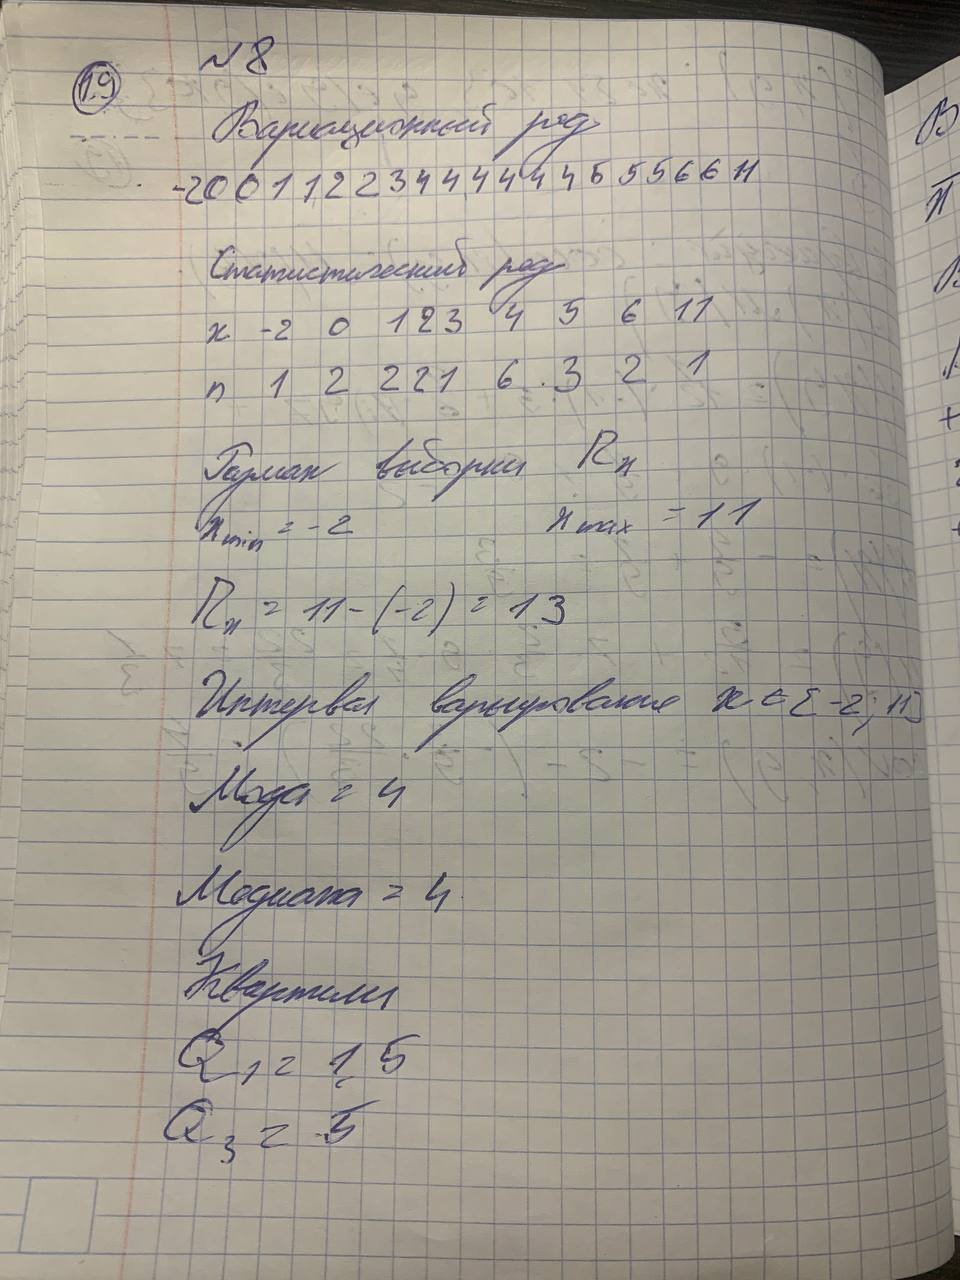 19
№8
Вариационный ряд
-2 0 0 1 1 2 2 3 4 4 4 4 4 4 5 5 5 6 6 11
Статистический ряд
x -2 0 1 2 3 4 5 6 11
n 1 2 2 2 1 6 3 2 1
Размах выборки Rx
xmin = -2 xmax = 11
Rx = 11-(-2) = 13
Интервал варьирования x ∈ [-2; 11]
Мода = 4
Медиана = 4
Квартили
Q1 = 1,5
Q3 = 5